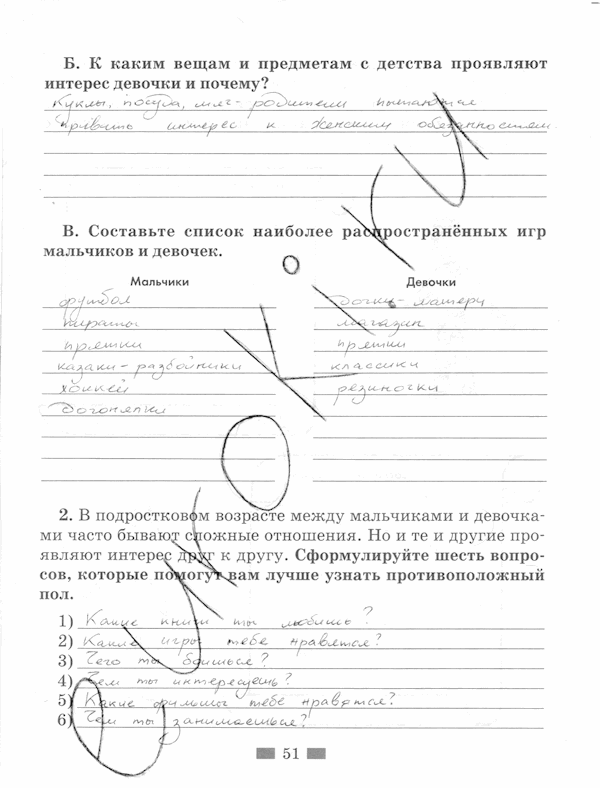 Б. К каким вещам и предметам с детства проявляют
интерес девочки и почему?
Куклы, посуда, мяг- родители пытаются
привить интерес к женским обязанностям
В. Составьте список наиболее распространённых игр
мальчиков и девочек.
Мальчики
футбол
пираты
прятки
казаки-разбойники
хоккей
догонялки
Девочки
дочки-матери
магазин
прятки
классики
резиночки
2. В подростковом возрасте между мальчиками и девочка-
ми часто бывают сложные отношения. Но и те и другие про-
являют интерес друг к другу. Сформулируйте шесть вопро-
сов, которые помогут вам лучше узнать противоположный
пол.
1) Какие книги ты любишь?
2) Какие игры тебе нравятся?
3) Чего ты боишься?
4) Чем ты интересуешь?
5) Какие фильмы тебе нравятся?
6) Чем ты занимаешься?
51